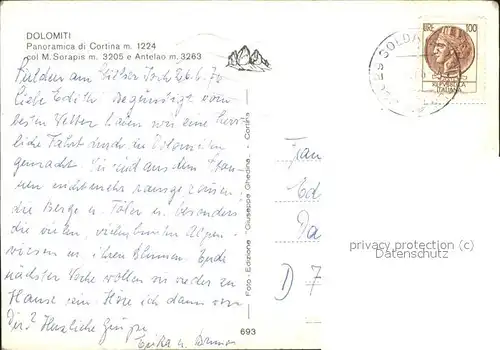 DOLOMITI
Panoramica di Cortina m. 1224
col M. Sorapis m. 3205 e Antelao m. 3263
LIRE 100
REPVBBLICA
ITALIANA
26.6.70
Liebe Edith! Begünstigt vom
besten Wetter haben wir eine herr-
liche Fahrt durch die Dolomiten
gemacht. Wir sind aus dem Staunen
nicht mehr rausgekommen,
die Berge u. Täler u. besonders
die vielen, vielen bunten Alpen-
wiesen m. ihren Blumen. Ende
nächster Woche wollen wir wieder zu
Hause sein. Höre ich dann von
Dir? Herzliche Grüsse
Erika u.
Foto - Edizione - Giuseppe Ghedina - Cortina
693
Frau
Ed
Da
D 7
privacy protection (c)
Datenschutz